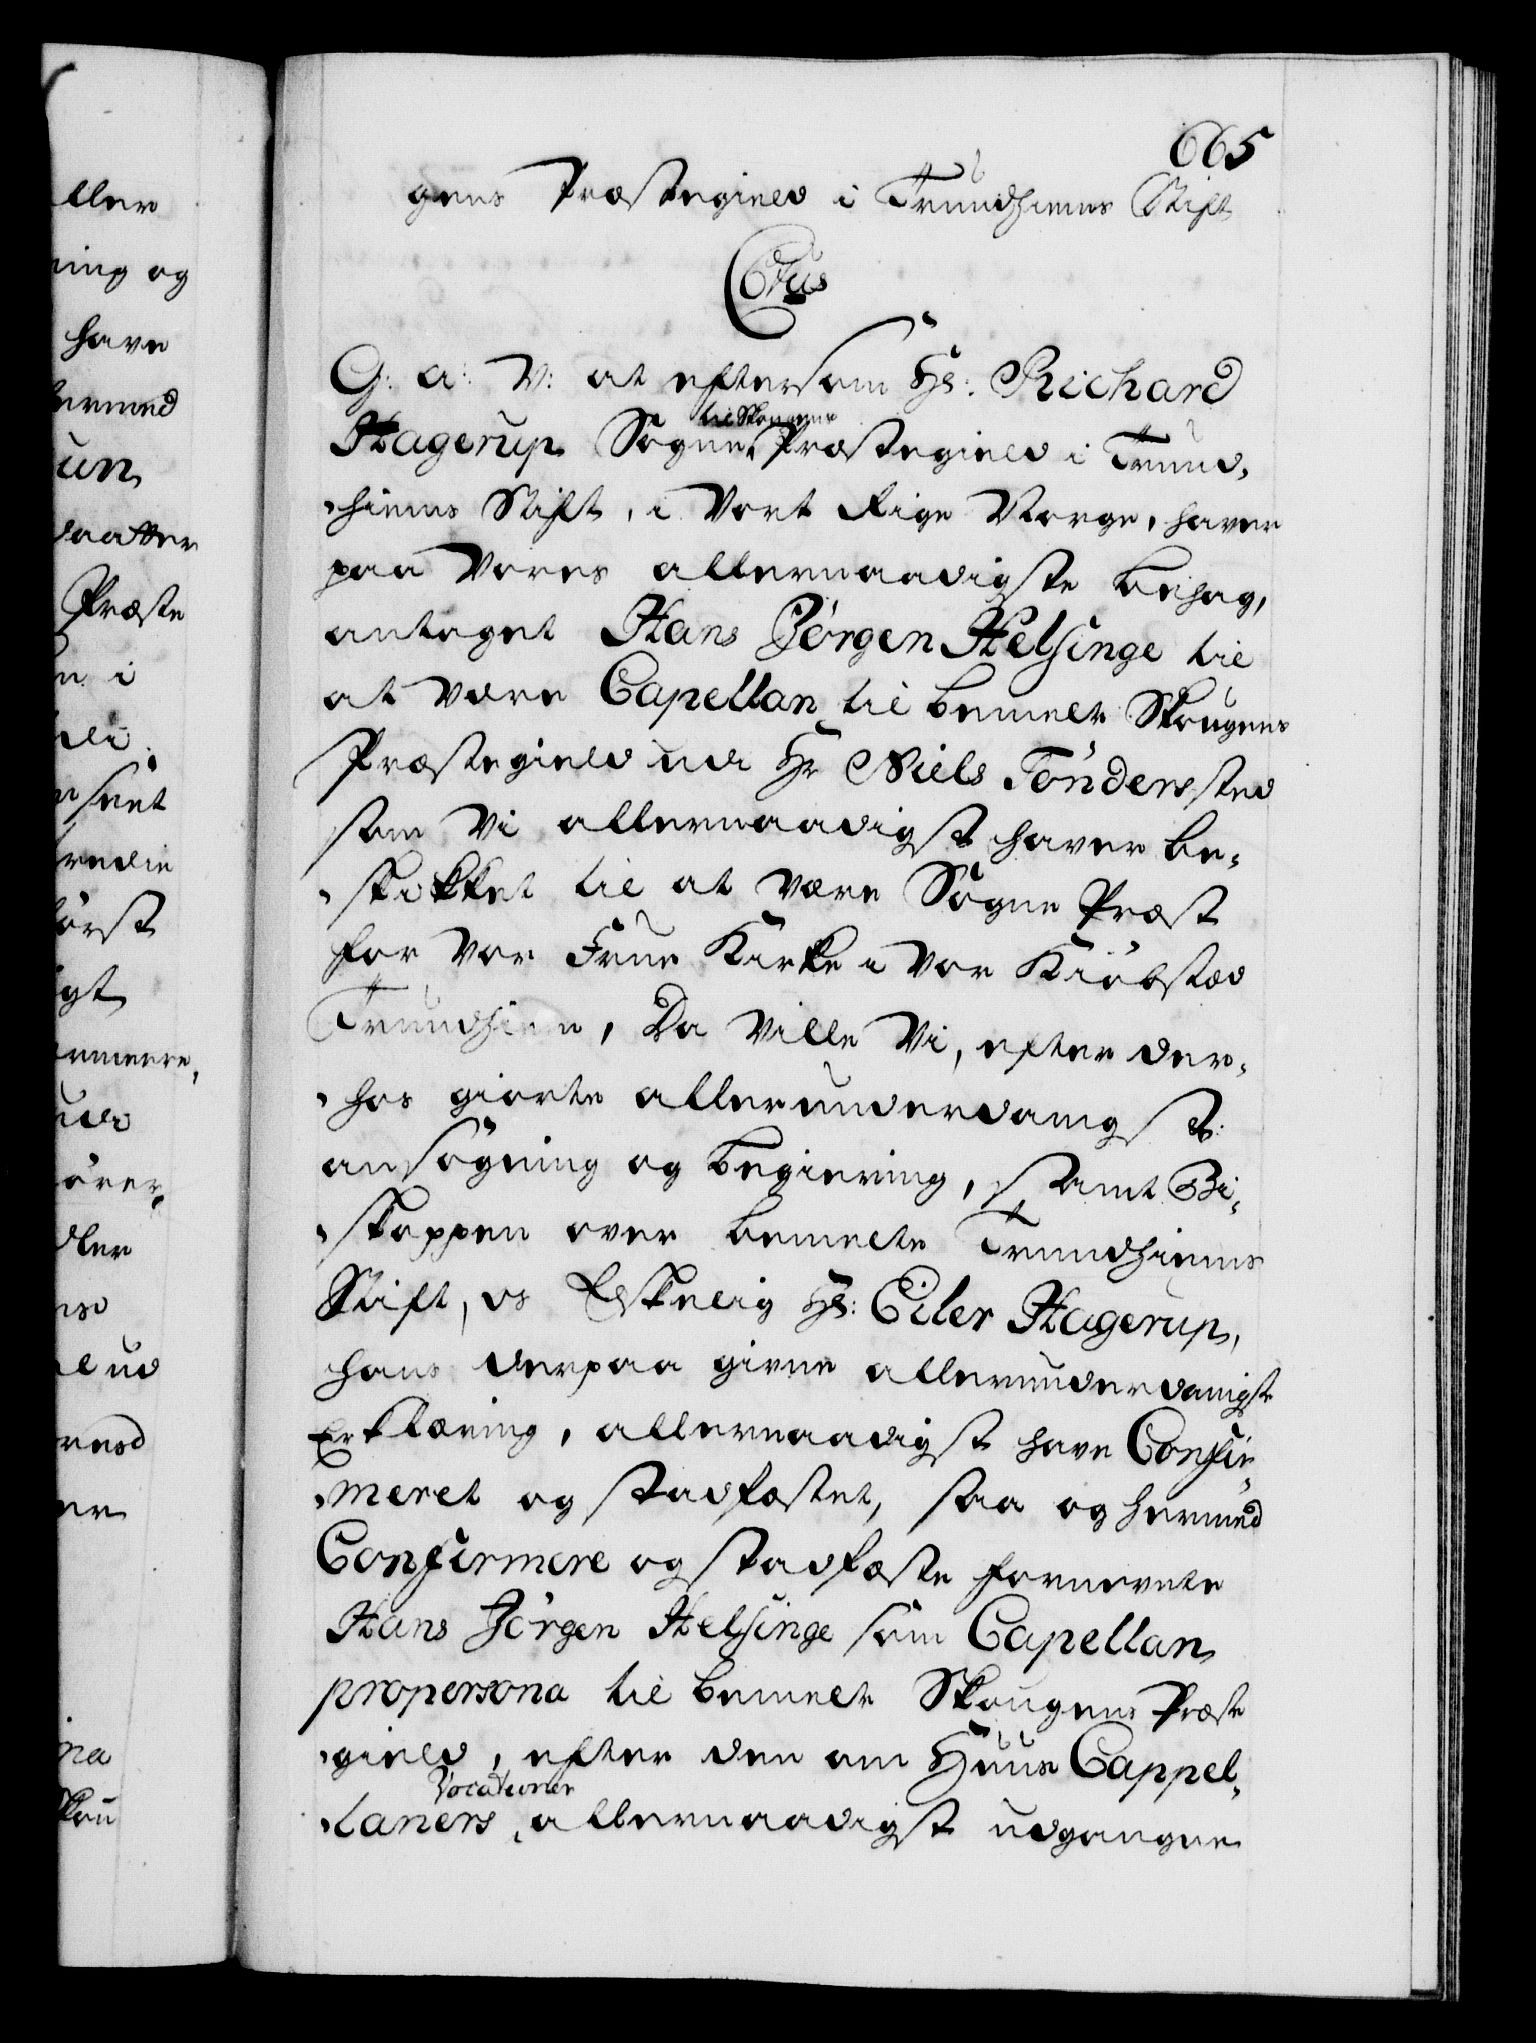 665
gens Præstegield i Trundhiems Stift
C6tus
G: a: V: at eftersom Hr: Richard
Hagerup Sogne Præstegield i Trund-
til Skougens
hiems Stift, i Vort Rige Norge, haver
paa Vores allernaadigste behag,
antaget Hans Jørgen Helsinge til
at være Capellan til bemelte Skougens
Præstegield udi Hr Niels Tönders sted
som Vi allernaadigst haver be-
skikket til at være Sogne Præst
for Vor Frue Kirke i Vor Kiöbstæd
Trundhiem, Da Ville Vi, efter der-
hos giorte allerunderdanigst
ansögning og begiering, samt Bi-
skoppen over bemelte Trundhiems
Stift, os Elskelig Hr: Eiler Hagerup,
hans derpaa givne allerunderdanigste
Erklæring, allernaadigst have Confir-
meret og stadfæstet, saa og hermed
Confirmere og stadfæste fornevnte
Hans Jörgen Helsinge som Capellan
propersona til bemelte Skougens Præste
gield, efter den om Huus Cappel-
Vocationer
laners, allernaadigst udgangne
ller
ning og
have
hermed
un
daatter
Præste
n i
udi
redie
först
igt
udi
eller
ud
er
na
Skou